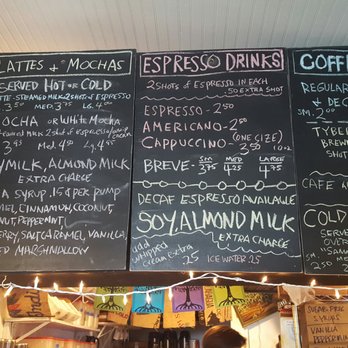 LATTES & MOCHAS
SERVED HOT OR COLD
STEAMED MILK 2 SHOTS OF ESPRESSO
3.50 MED. 3.75 LG. 4.00
MOCHA OR WHITE MOCHA
MILK 2 SHOT OF ESPRESSO
MED 4.50 LG. 4.75
MILK, ALMOND MILK
EXTRA CHARGE
A SYRUP .75¢ PER PUMP
CINNAMON, COCONUT,
PEPPERMINT
SALT CARAMEL, VANILLA,
MARSHMALLOW
ESPRESSO DRINKS
2 SHOTS OF ESPRESSO IN EACH
.50 EXTRA SHOT
ESPRESSO - 2.50
AMERICANO - 2.50
CAPPUCCINO (ONE SIZE) 3.50
BREVE - SM 3.75 MED 4.25 LARGE 4.75
DECAF ESPRESSO AVAILABLE
SOY, ALMOND MILK
EXTRA CHARGE
add whipped cream extra .25
ICE WATER .25
COFF
REGULAR
& DEC
SM. 2.00
BREW
CAFE
COLD
SERVE
OVER
SM 2.50
SUGAR FREE
SYRUPS
VANILLA
PEPPERMINT